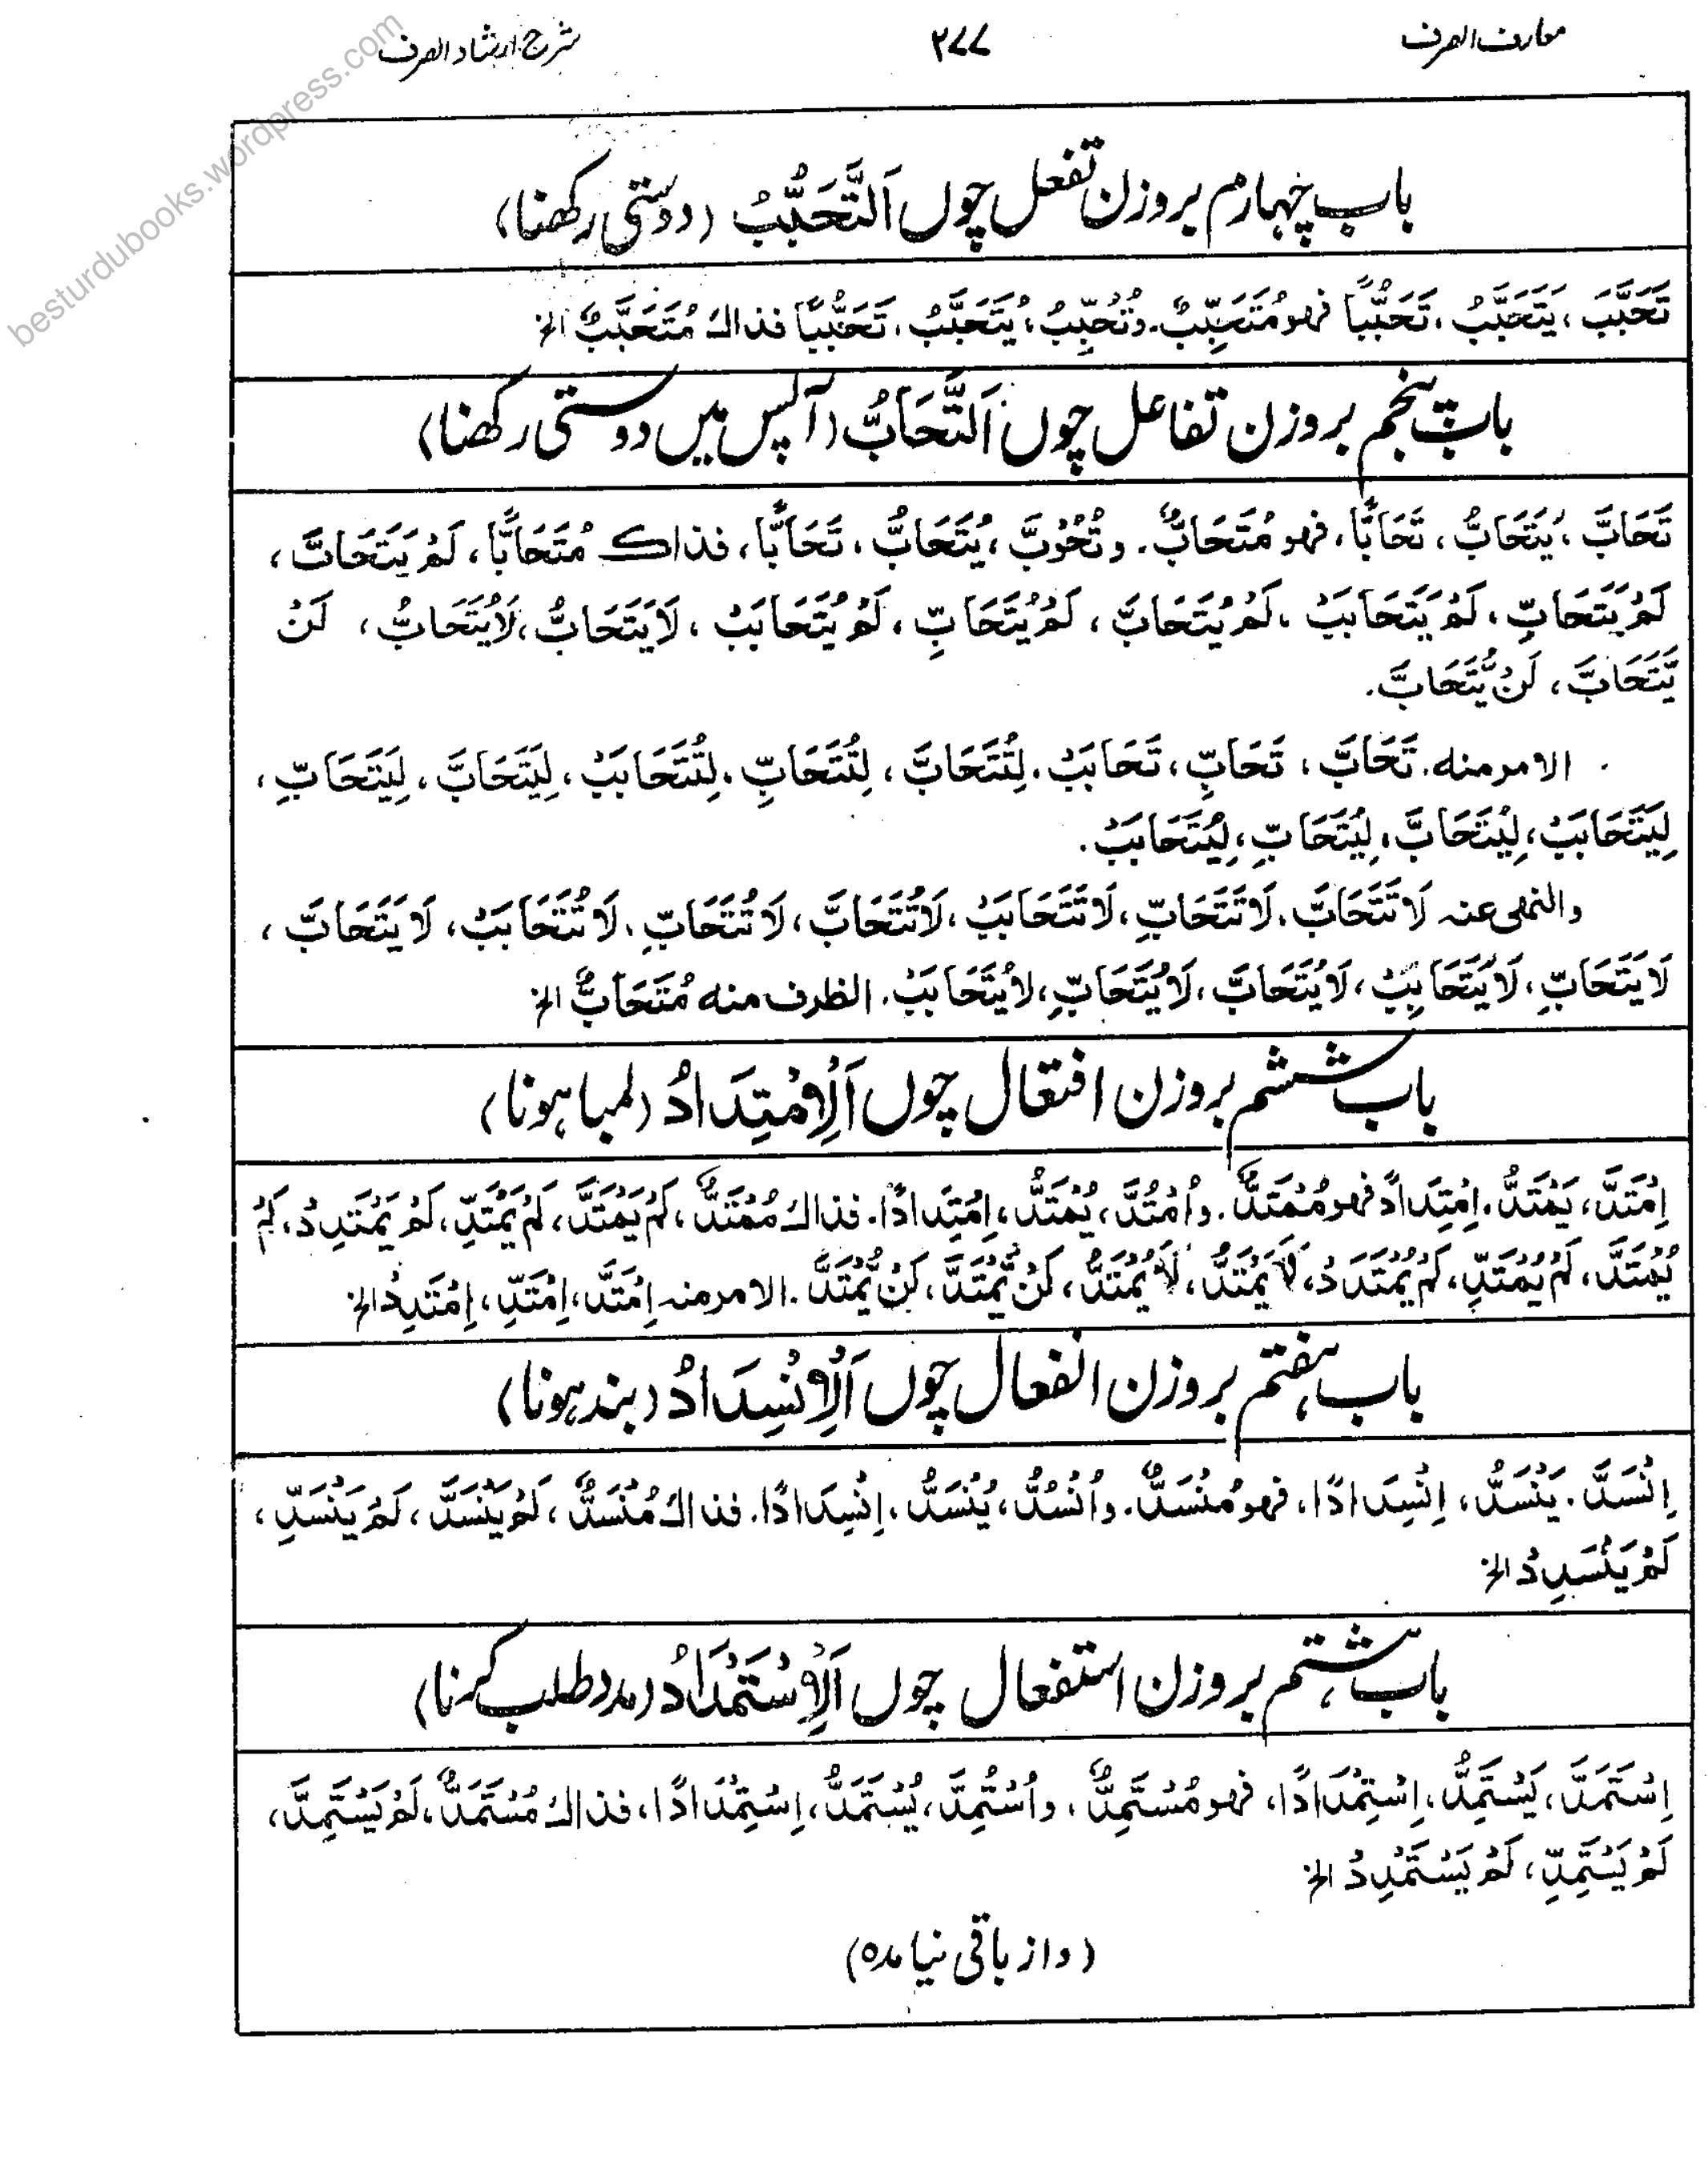 معارف الصرف ۲۷۷ شرح ارشاد الصرف
باب چہارم بروزن تفعل چوں اَلتَّحَبُّبُ (دوستی رکھنا)
تَحَبَّبَ ، يَتَحَبَّبُ ، تَحَبُّبًا فهو مُتَحَبِّبٌ. وتُحُبِّبَ ، يُتَحَبَّبُ ، تَحَبُّبًا فذاك مُتَحَبَّبٌ الخ
باب پنجم بروزن تفاعل چوں اَلتَّحَابُّ (آپس میں دوستی رکھنا)
تَحَابَّ ، يَتَحَابُّ ، تَحَابًّا ، فهو مُتَحَابٌّ. وتُحُوْبَّ ، يُتَحَابُّ ، تَحَابًّا ، فذاك مُتَحَابًّا ، لَمْ يَتَحَابَّ ،
لَمْ يَتَحَابِّ ، لَمْ يَتَحَابَبْ ، لَمْ يُتَحَابَّ ، لَمْ يُتَحَابِّ ، لَمْ يُتَحَابَبْ ، لَا يَتَحَابُّ ، لَا يُتَحَابُّ ، لَنْ
يَّتَحَابَّ ، لَنْ يُّتَحَابَّ.
الامر منه. تَحَابَّ ، تَحَابِّ ، تَحَابَبْ. لِتُتَحَابَّ ، لِتُتَحَابِّ ، لِتُتَحَابَبْ ، لِيَتَحَابَّ ، لِيَتَحَابِّ ،
لِيَتَحَابَبْ ، لِيُتَحَابَّ ، لِيُتَحَابِّ ، لِيُتَحَابَبْ.
والنهى عنه لَا تَتَحَابَّ. لَا تَتَحَابِّ ، لَا تَتَحَابَبْ ، لَا تُتَحَابَّ ، لَا تُتَحَابِّ ، لَا تُتَحَابَبْ ، لَا يَتَحَابَّ ،
لَا يَتَحَابِّ ، لَا يَتَحَابِبْ ، لَا يُتَحَابَّ ، لَا يُتَحَابِّ ، لَا يُتَحَابَبْ. الظرف منه مُتَحَابٌّ الخ
باب ششم بروزن افتعال چوں اَلْاِمْتِدَادُ (لمبا ہونا)
اِمْتَدَّ ، يَمْتَدُّ ، اِمْتِدَادً فهو مُمْتَدٌّ. واُمْتُدَّ ، يُمْتَدُّ ، اِمْتِدَادًا. فذاك مُمْتَدٌّ ، لَمْ يَمْتَدَّ ، لَمْ يَمْتَدِّ ، لَمْ يَمْتَدِدْ ، لَمْ
يُمْتَدَّ ، لَمْ يُمْتَدِّ ، لَمْ يُمْتَدَدْ ، لَا يَمْتَدُّ ، لَا يُمْتَدُّ ، لَنْ يَّمْتَدَّ ، لَنْ يُّمْتَدَّ. الامر منه اِمْتَدَّ ، اِمْتَدِّ ، اِمْتَدِدْ الخ
باب ہفتم بروزن انفعال چوں اَلْاِنْسِدَادُ (بند ہونا)
اِنْسَدَّ . يَنْسَدُّ ، اِنْسِدَادًا ، فهو مُنْسَدٌّ. واُنْسُدَّ ، يُنْسَدُّ ، اِنْسِدَادًا. فذاك مُنْسَدٌّ ، لَمْ يَنْسَدَّ ، لَمْ يَنْسَدِّ ،
لَمْ يَنْسَدِدْ الخ
باب ہشتم بروزن استفعال چوں اَلْاِسْتِمْدَادُ (مدد طلب کرنا)
اِسْتَمَدَّ ، يَسْتَمِدُّ ، اِسْتِمْدَادًا ، فهو مُسْتَمِدٌّ ، واُسْتُمِدَّ ، يُسْتَمَدُّ ، اِسْتِمْدَادًا ، فذاك مُسْتَمَدٌّ ، لَمْ يَسْتَمِدَّ ،
لَمْ يَسْتَمِدِّ ، لَمْ يَسْتَمْدِدْ الخ
(واز باقی نیامدہ)
besturdubooks.wordpress.com